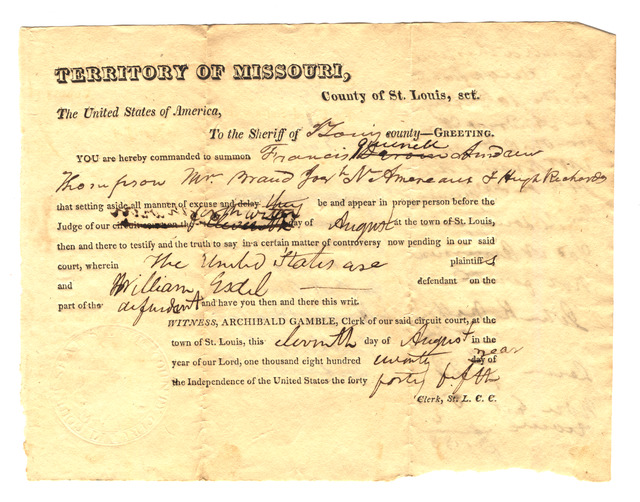 TERRITORY OF MISSOURI,
County of St. Louis, sct.
The United States of America,
To the Sheriff of St Louis county—GREETING.
YOU are hereby commanded to summon Francis Andrew
Thompson Mr. Braud Jos N. Amereaux & Hugh Richards
that setting aside all manner of excuse and delay they be and appear in proper person before the
Judge of our circuit court on the day of August at the town of St. Louis,
then and there to testify and the truth to say in a certain matter of controversy now pending in our said
court, wherein The United States are plaintiffs
and William Esdel defendant on the
part of the defendant and have you then and there this writ.
WITNESS, ARCHIBALD GAMBLE, Clerk of our said circuit court, at the
town of St. Louis, this eleventh day of August in the
year of our Lord, one thousand eight hundred twenty day of
the Independence of the United States the forty forty fifth
Clerk, St. L. C. C.